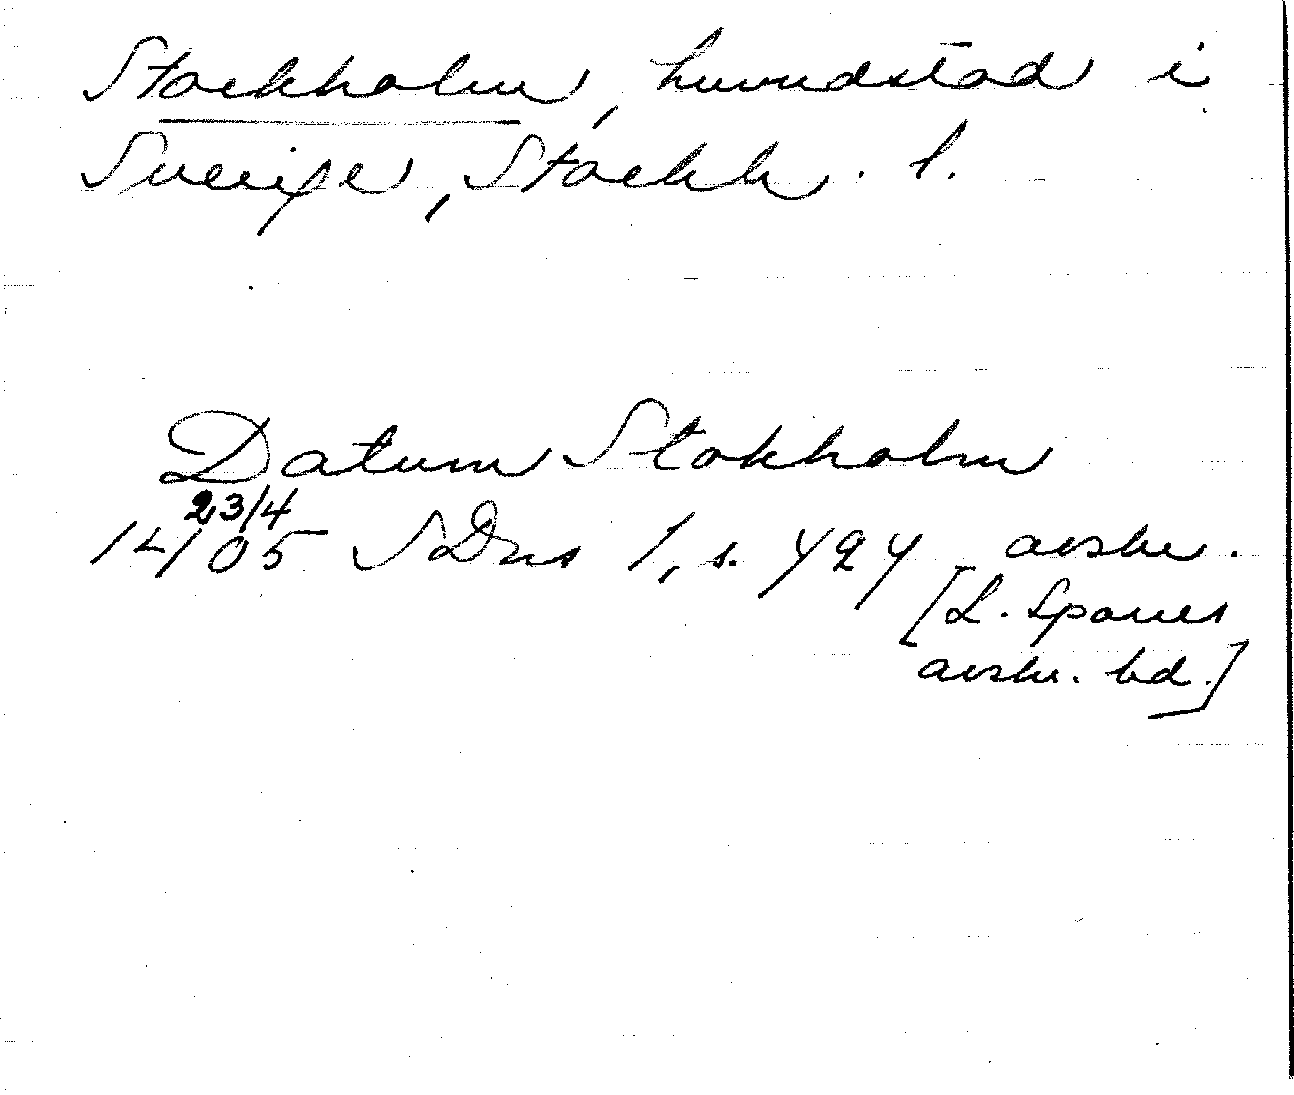 Stockholm, huvudstad i
Sverige, Stockh. l.
Datum Stokholm
23/4
1405 SDns 1, s. 494 avskr.
[L. Sparres
avskr. bd.]